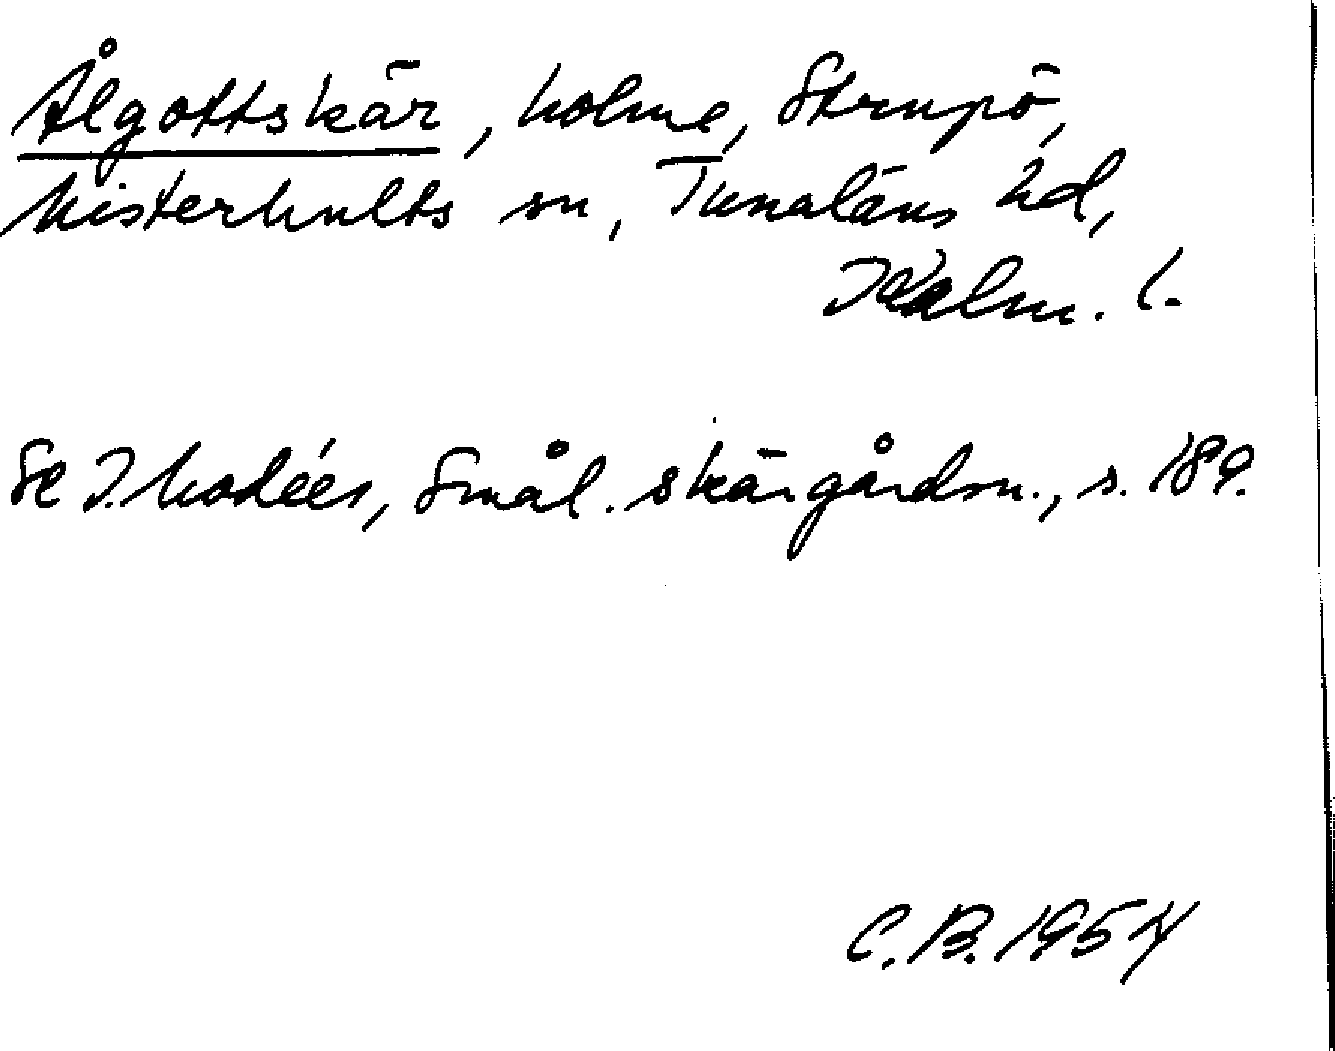 Ålgottskär, holme, Strupö,
Misterhults sn, Tunaläns hd,
Kalm. l.
Se I. Modéer, Smål. skärgårdsn., s. 189.
C. B. 1954